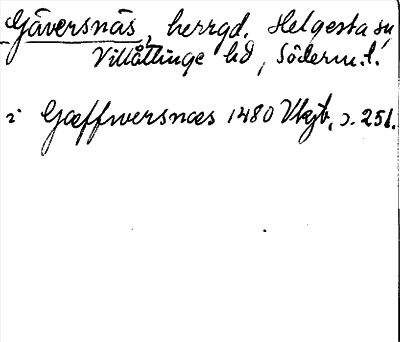 Gäversnäs, herrgd. Helgesta sn,
Villåttinge hd, Söderm. l.
i Gæffwersnæs 1480 Vkjb, s. 251.